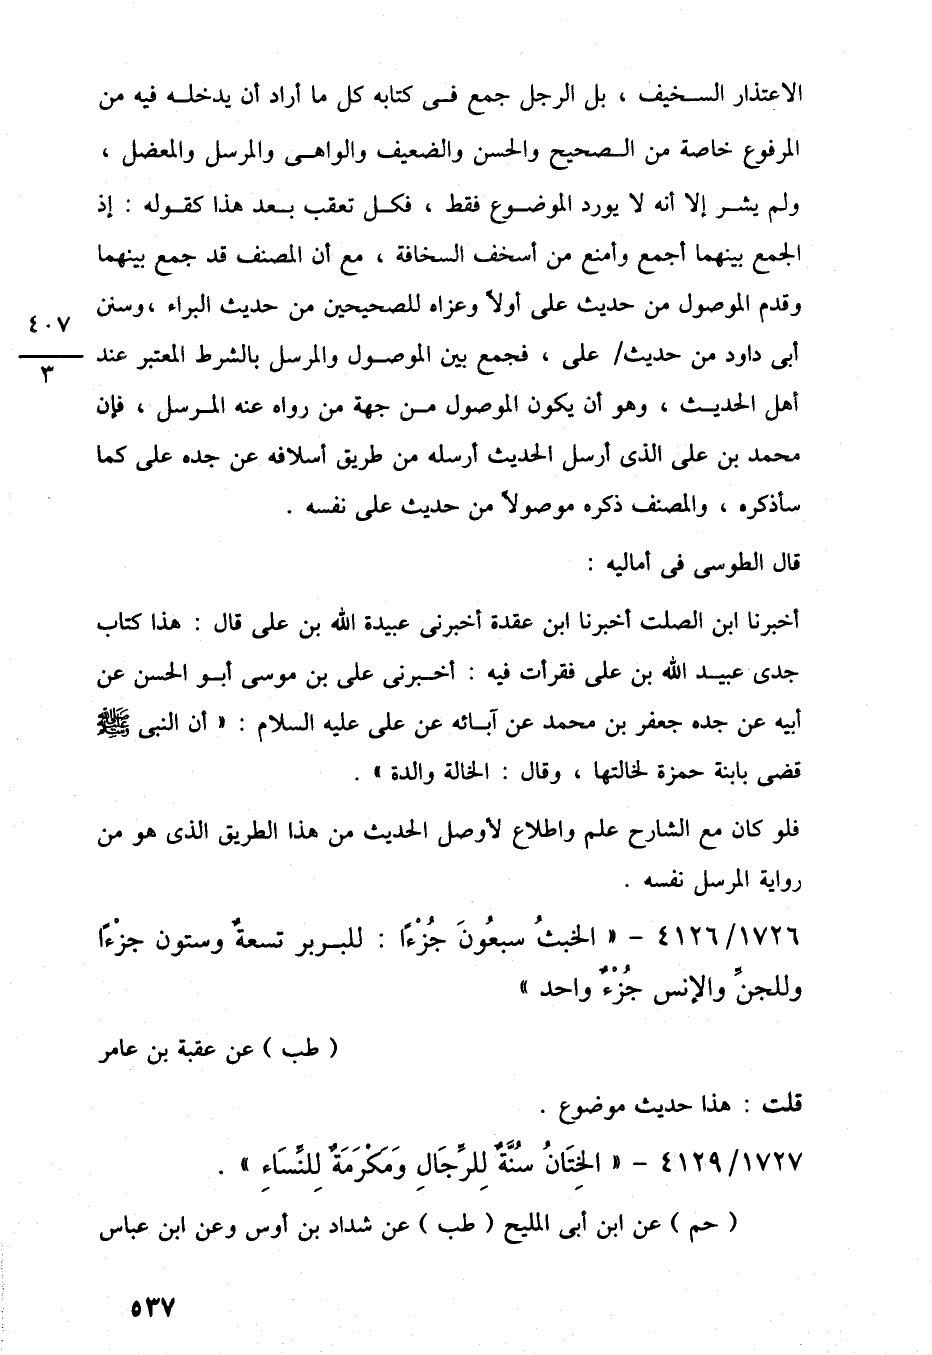 الاعتذار السخيف ، بل الرجل جمع فى كتابه كل ما أراد أن يدخله فيه من
المرفوع خاصة من الصحيح والحسن والضعيف والواهى والمرسل والمعضل ،
ولم يشر إلا أنه لا يورد الموضوع فقط ، فكل تعقب بعد هذا كقوله : إذ
الجمع بينهما أجمع وأمنع من أسخف السخافة ، مع أن المصنف قد جمع بينهما
وقدم الموصول من حديث على أولاً وعزاه للصحيحين من حديث البراء ،وسنن
٤٠٧
٣
أبى داود من حديث/ على ، فجمع بين الموصول والمرسل بالشرط المعتبر عند
أهل الحديث ، وهو أن يكون الموصول من جهة من رواه عنه المرسل ، فإن
محمد بن على الذى أرسل الحديث أرسله من طريق أسلافه عن جده على كما
سأذكره ، والمصنف ذكره موصولاً من حديث على نفسه .
قال الطوسى فى أماليه :
أخبرنا ابن الصلت أخبرنا ابن عقدة أخبرنى عبيدة الله بن على قال : هذا كتاب
جدى عبيد الله بن على فقرأت فيه : أخبرنى على بن موسى أبو الحسن عن
أبيه عن جده جعفر بن محمد عن آبائه عن على عليه السلام : « أن النبى ﷺ
قضى بابنة حمزة لخالتها ، وقال : الخالة والدة » .
فلو كان مع الشارح علم واطلاع لأوصل الحديث من هذا الطريق الذى هو من
رواية المرسل نفسه .
٤١٢٦/١٧٢٦ – « الخبثُ سبعُونَ جُزْءًا : للبربر تسعةٌ وستون جزْءًا
وللجنِّ والإنس جُزْءٌ واحد »
( طب ) عن عقبة بن عامر
قلت : هذا حديث موضوع .
٤١٢٩/١٧٢٧ – « الخِتَانُ سُنَّةٌ لِلرِّجَالِ وَمَكْرَمَةٌ لِلنِّسَاءِ » .
( حم ) عن ابن أبى المليح ( طب ) عن شداد بن أوس وعن ابن عباس
٥٣٧